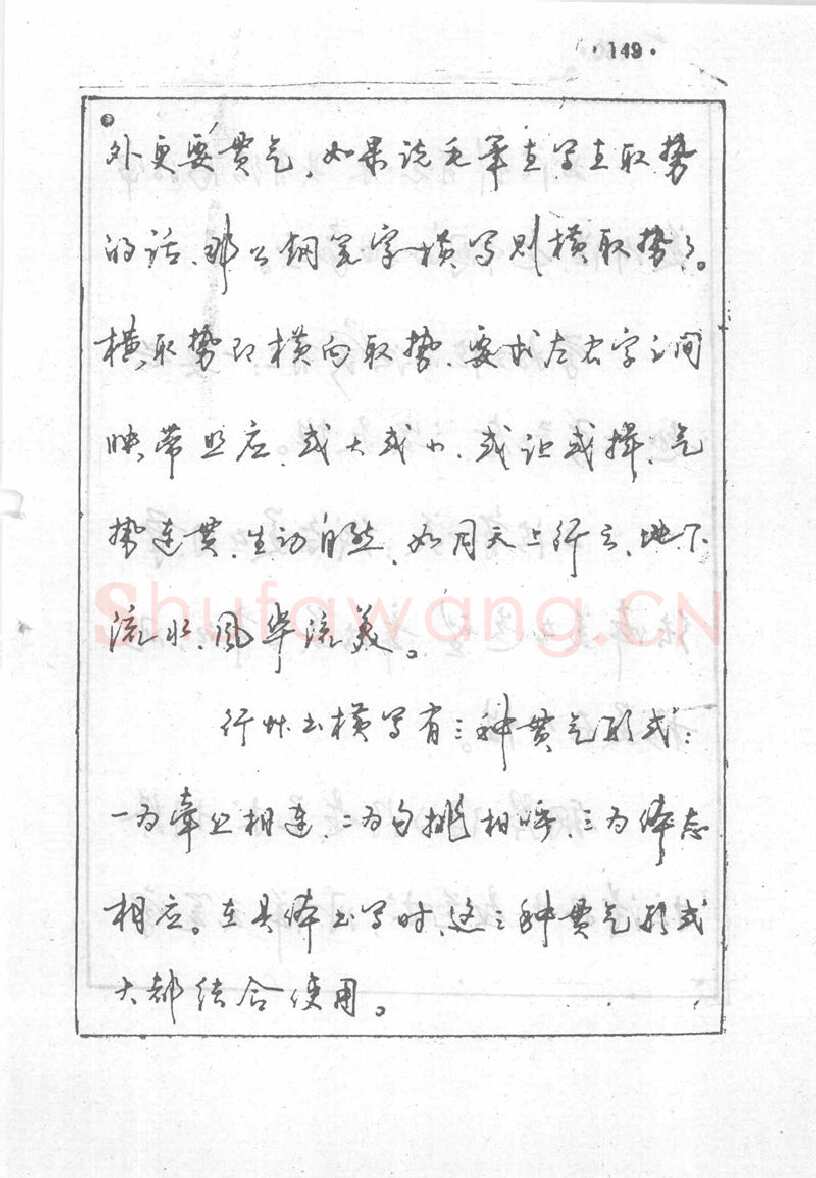 ·149·
外更要贯气,如果说毛笔直写直取势
的话,那么钢笔字横写则横取势了。
横取势即横向取势,要求左右字之间
映带照应,或大或小,或让或揖,气
势连贯,生动自然,如同天上行云,地下
流水,风华流美。
行草书横写有三种贯气形式:
一为牵丝相连,二为勾挑相呼,三为体态
相应。在具体书写时,这三种贯气形式
大都结合使用。
Shufawang.CN